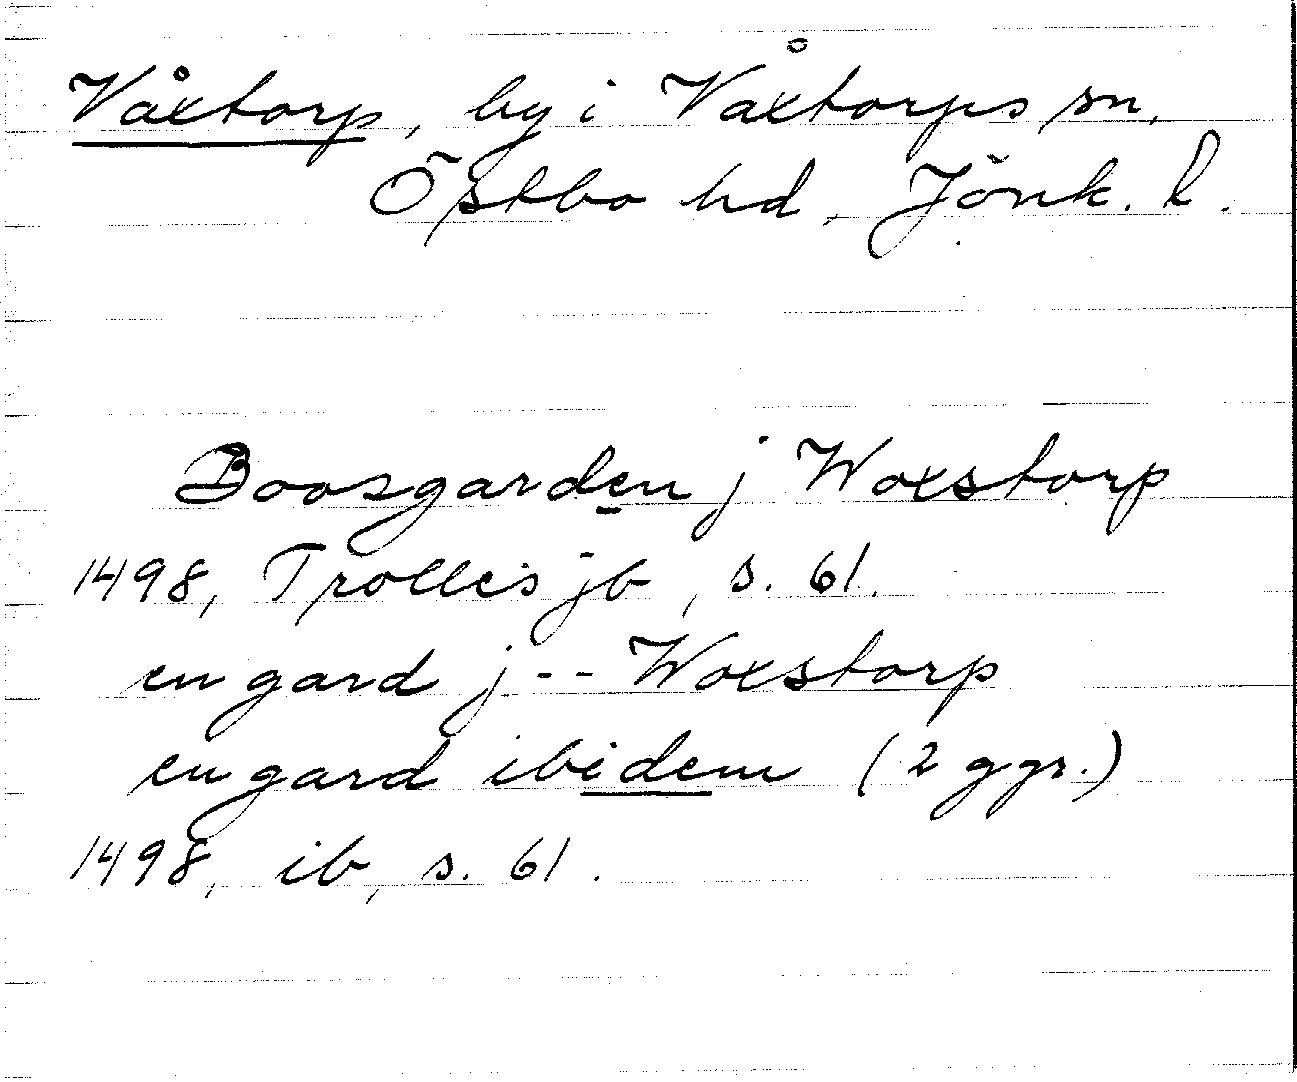 Våxtorp, by i Våxtorps sn,
Östbo hd, Jönk. l.
Boosgarden j Woxstorp
1498, Trolles jb, s. 61.
en gard j -- Woxstorp
en gard ibidem (2 ggr.)
1498, ib, s. 61.